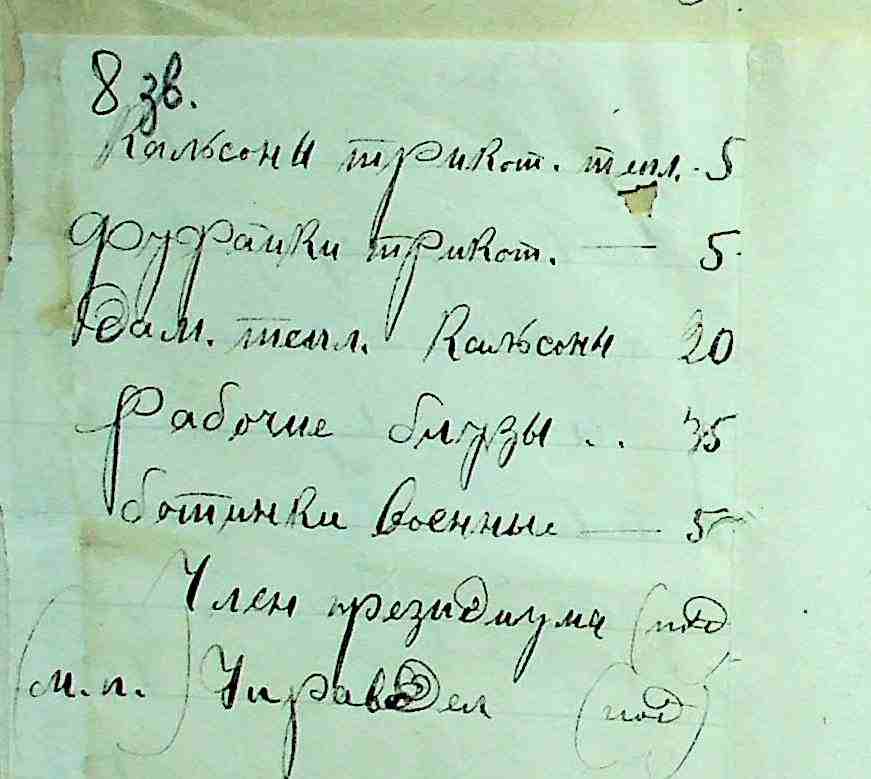 8 зв.
Кальсоны трикот. тепл. 5
Фуфайки трикот. — 5
Дам. тепл. Кальсоны 20
Рабочие блузы .. 35
ботинки военные — 5
Член президиума (под
(м.п.) Управдел (под)